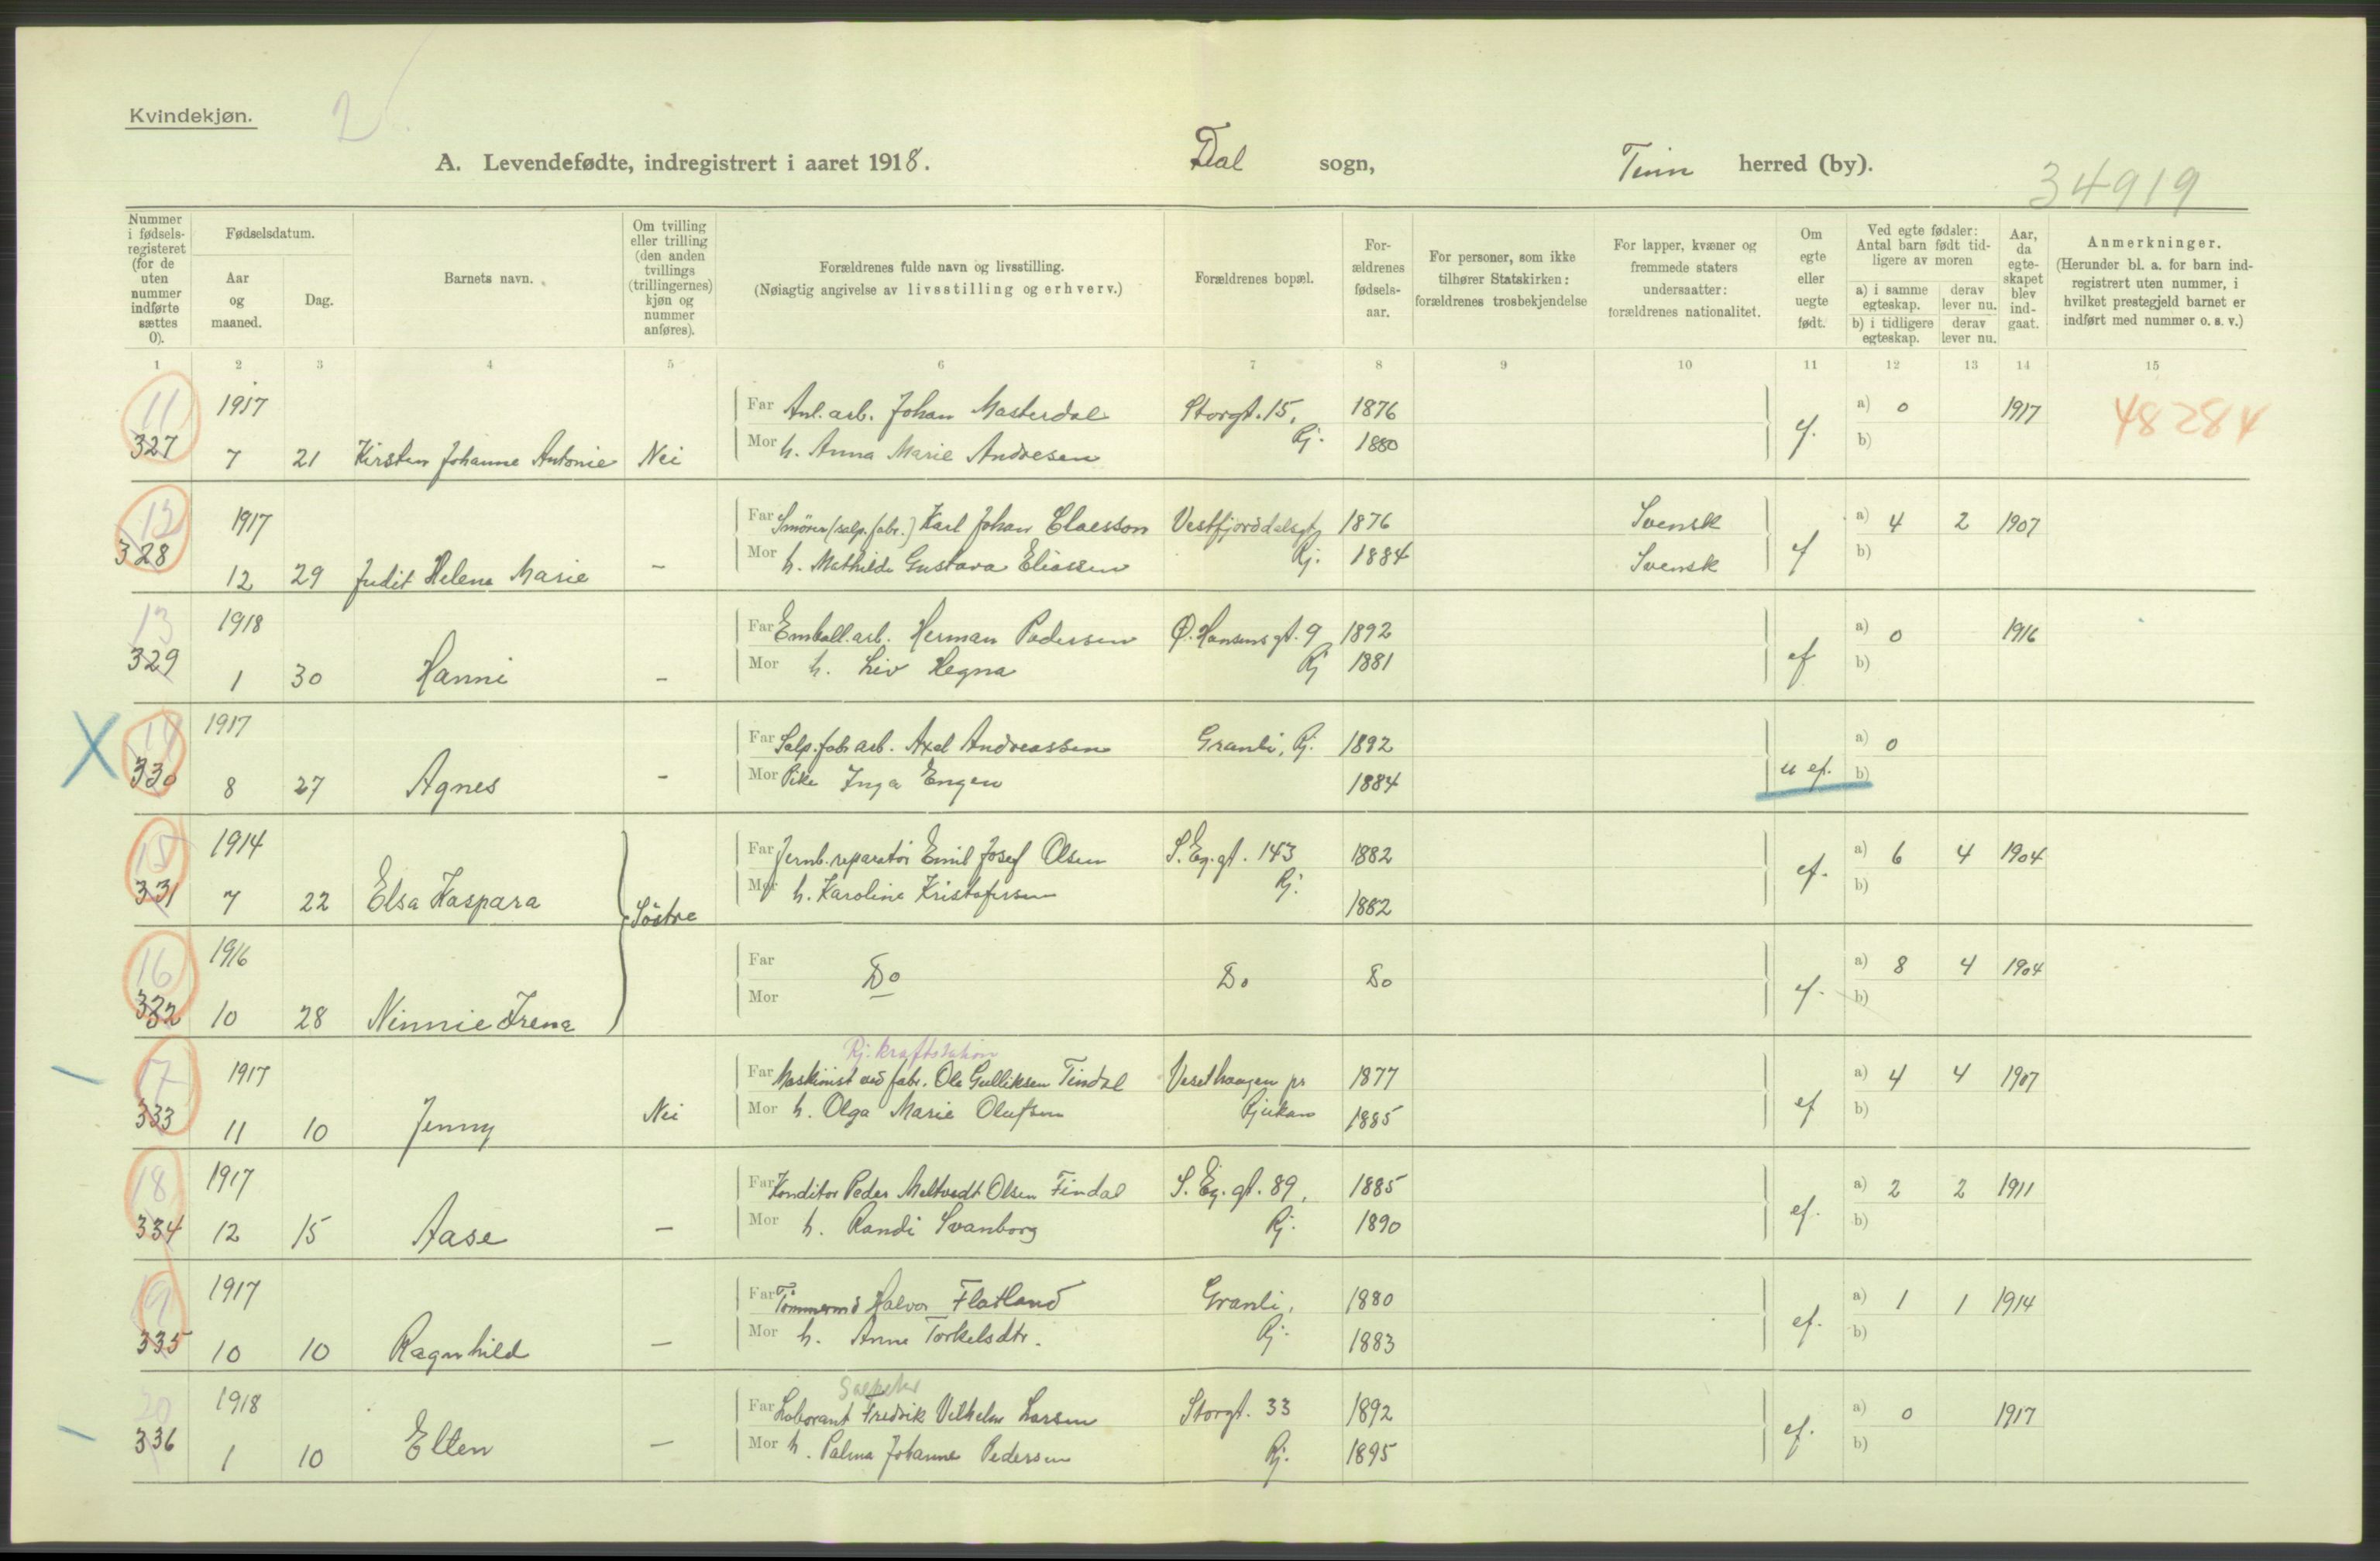 Kvindekjøn.
2
A. Levendefødte, indregistrert i aaret 1918. Dal sogn, Tinn herred (by).
34919
Nummer i fødselsregisteret (for de uten nummer indførte sættes 0).
Fødselsdatum.
Aar og maaned.
Dag.
Barnets navn.
Om tvilling eller trilling (den anden tvillings (trillingernes) kjøn og nummer anføres).
Forældrenes fulde navn og livsstilling.
(Nøiagtig angivelse av livsstilling og erhverv.)
Forældrenes bopæl.
Forældrenes fødselsaar.
For personer, som ikke tilhører Statskirken: forældrenes trosbekjendelse
For lapper, kvæner og fremmede staters undersaatter: forældrenes nationalitet.
Om egte eller uegte født.
Ved egte fødsler: Antal barn født tidligere av moren
a) i samme egteskap. derav lever nu.
b) i tidligere egteskap. derav lever nu.
Aar, da egteskapet blev indgaat.
Anmerkninger.
(Herunder bl. a. for barn indregistrert uten nummer, i hvilket prestegjeld barnet er indført med nummer o. s. v.)
1 2 3 4 5 6 7 8 9 10 11 12 13 14 15
11 1917 Far Anl. arb. Johan Masterdal Storgt. 15, 1876 a) 0 1917 48284
327 7 21 Kirsten Johanne Antonie Nei Mor h. Anna Marie Andresen Rj. 1880 b)
12 1917 Far Smörer (salp. fabr.) Karl Johan Claesson Vestfjorddalsgt 1876 Svensk a) 4 2 1907
328 12 29 Judit Helene Marie - Mor h. Mathilde Gustava Eliassen Rj. 1884 Svensk b)
13 1918 Far Emball. arb. Herman Pedersen O. Hansensgt. 9 1892 a) 0 1916
329 1 30 Hanni - Mor h. Liv Hegna Rj 1881 ef b)
X 14 1917 Far Salp. fab arb. Axel Andreassen Granli, Rj. 1892 a) 0
330 8 27 Agnes - Mor Pike Inga Engen 1884 u ef. b)
15 1914 Far Jernb. reparatör Emil Josef Olsen S. Eg. gt. 143 1882 a) 6 4 1904
331 7 22 Elsa Kaspara Söstre Mor h. Karoline Kristofersen Rj. 1882 ef. b)
16 1916 Far Do Do Do a) 8 4 1904
332 10 28 Ninnie Irene Mor ef. b)
Rj. kraftstation
17 1917 Far Maskinist ved fabr. Ole Gulliksen Tindal Veselhaugen pr 1877 a) 4 4 1907
333 11 10 Jenny Nei Mor h. Olga Marie Olufsen Rjukan 1885 ef b)
18 1917 Far Konditor Peder Meltvedt Olsen Findal S. Eg. gt. 89, 1885 a) 2 2 1911
334 12 15 Aase - Mor h. Randi Svanborg Rj. 1890 ef. b)
19 1917 Far Tömmermd Halvor Flatland Granli, 1880 a) 1 1 1914
335 10 10 Ragnhild - Mor h. Anne Torkelsdtr. Rj. 1883 ef. b)
Salpeter
20 1918 Far Laborant Fredrik Vilhelm Larsen Storgt. 33 1892 a) 0 1917
336 1 10 Ellen - Mor h. Palma Johanne Pedersen Rj. 1895 ef. b)